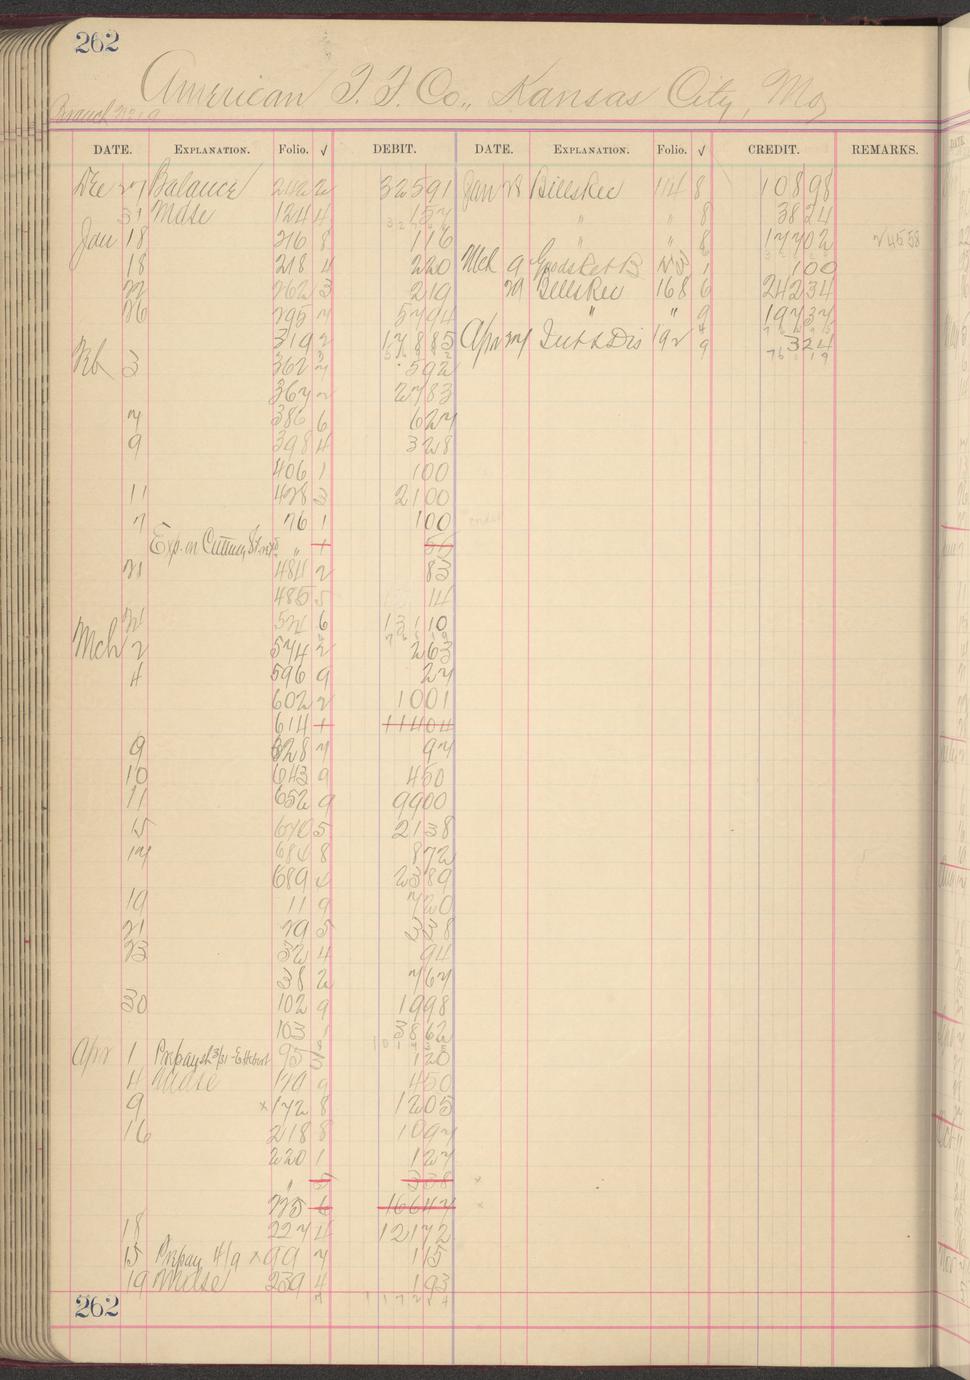 262
American T. T. Co., Kansas City, Mo
DATE. EXPLANATION. Folio. √ DEBIT. DATE. EXPLANATION. Folio. √ CREDIT. REMARKS.
Dec 27 Balance 242 2 325 91 Jan 28 Bills Rec 114 8 108 98
31 Mdse 124 4 1 57 " " 8 38 24
Jan 18 216 8 1 16 " 8 177 02
18 218 4 2 20 Mch 9 1 1 00
22 262 3 2 19 29 Bills Rec 168 6 242 34
26 295 7 57 94 " " 9 197 37
319 2 178 85 Apr 27 Int & Dis 192 9 3 24
Feb 3 362 7 5 92
367 2 27 83
7 386 6 6 27
9 398 4 3 28
406 1 1 00
11 428 3 21 00
7 76 1 1 00
Exp. on "
21 484 2 83
485 5 14
24 521 6 131 10
Mch 2 574 2 2 63
4 596 9 27
602 2 10 01
614 1 114 04
9 628 7 97
10 643 9 4 50
11 652 9 99 00
15 670 5 21 38
17 686 8 8 72
689 23 89
19 11 9 7 20
21 29 5 3 38
23 32 4 94
38 2 7 67
30 102 9 19 98
103 1 38 62
Apr 1 95 1 20
4 Mdse 120 9 4 50
9 x 172 8 12 05
16 218 8 10 97
220 1 1 27
" 5 3 38 x
225 6 166 47 x
18 227 4 121 72
15 Prepay 4/9 x 99 7 1 15
19 Mdse 239 4 1 93
262